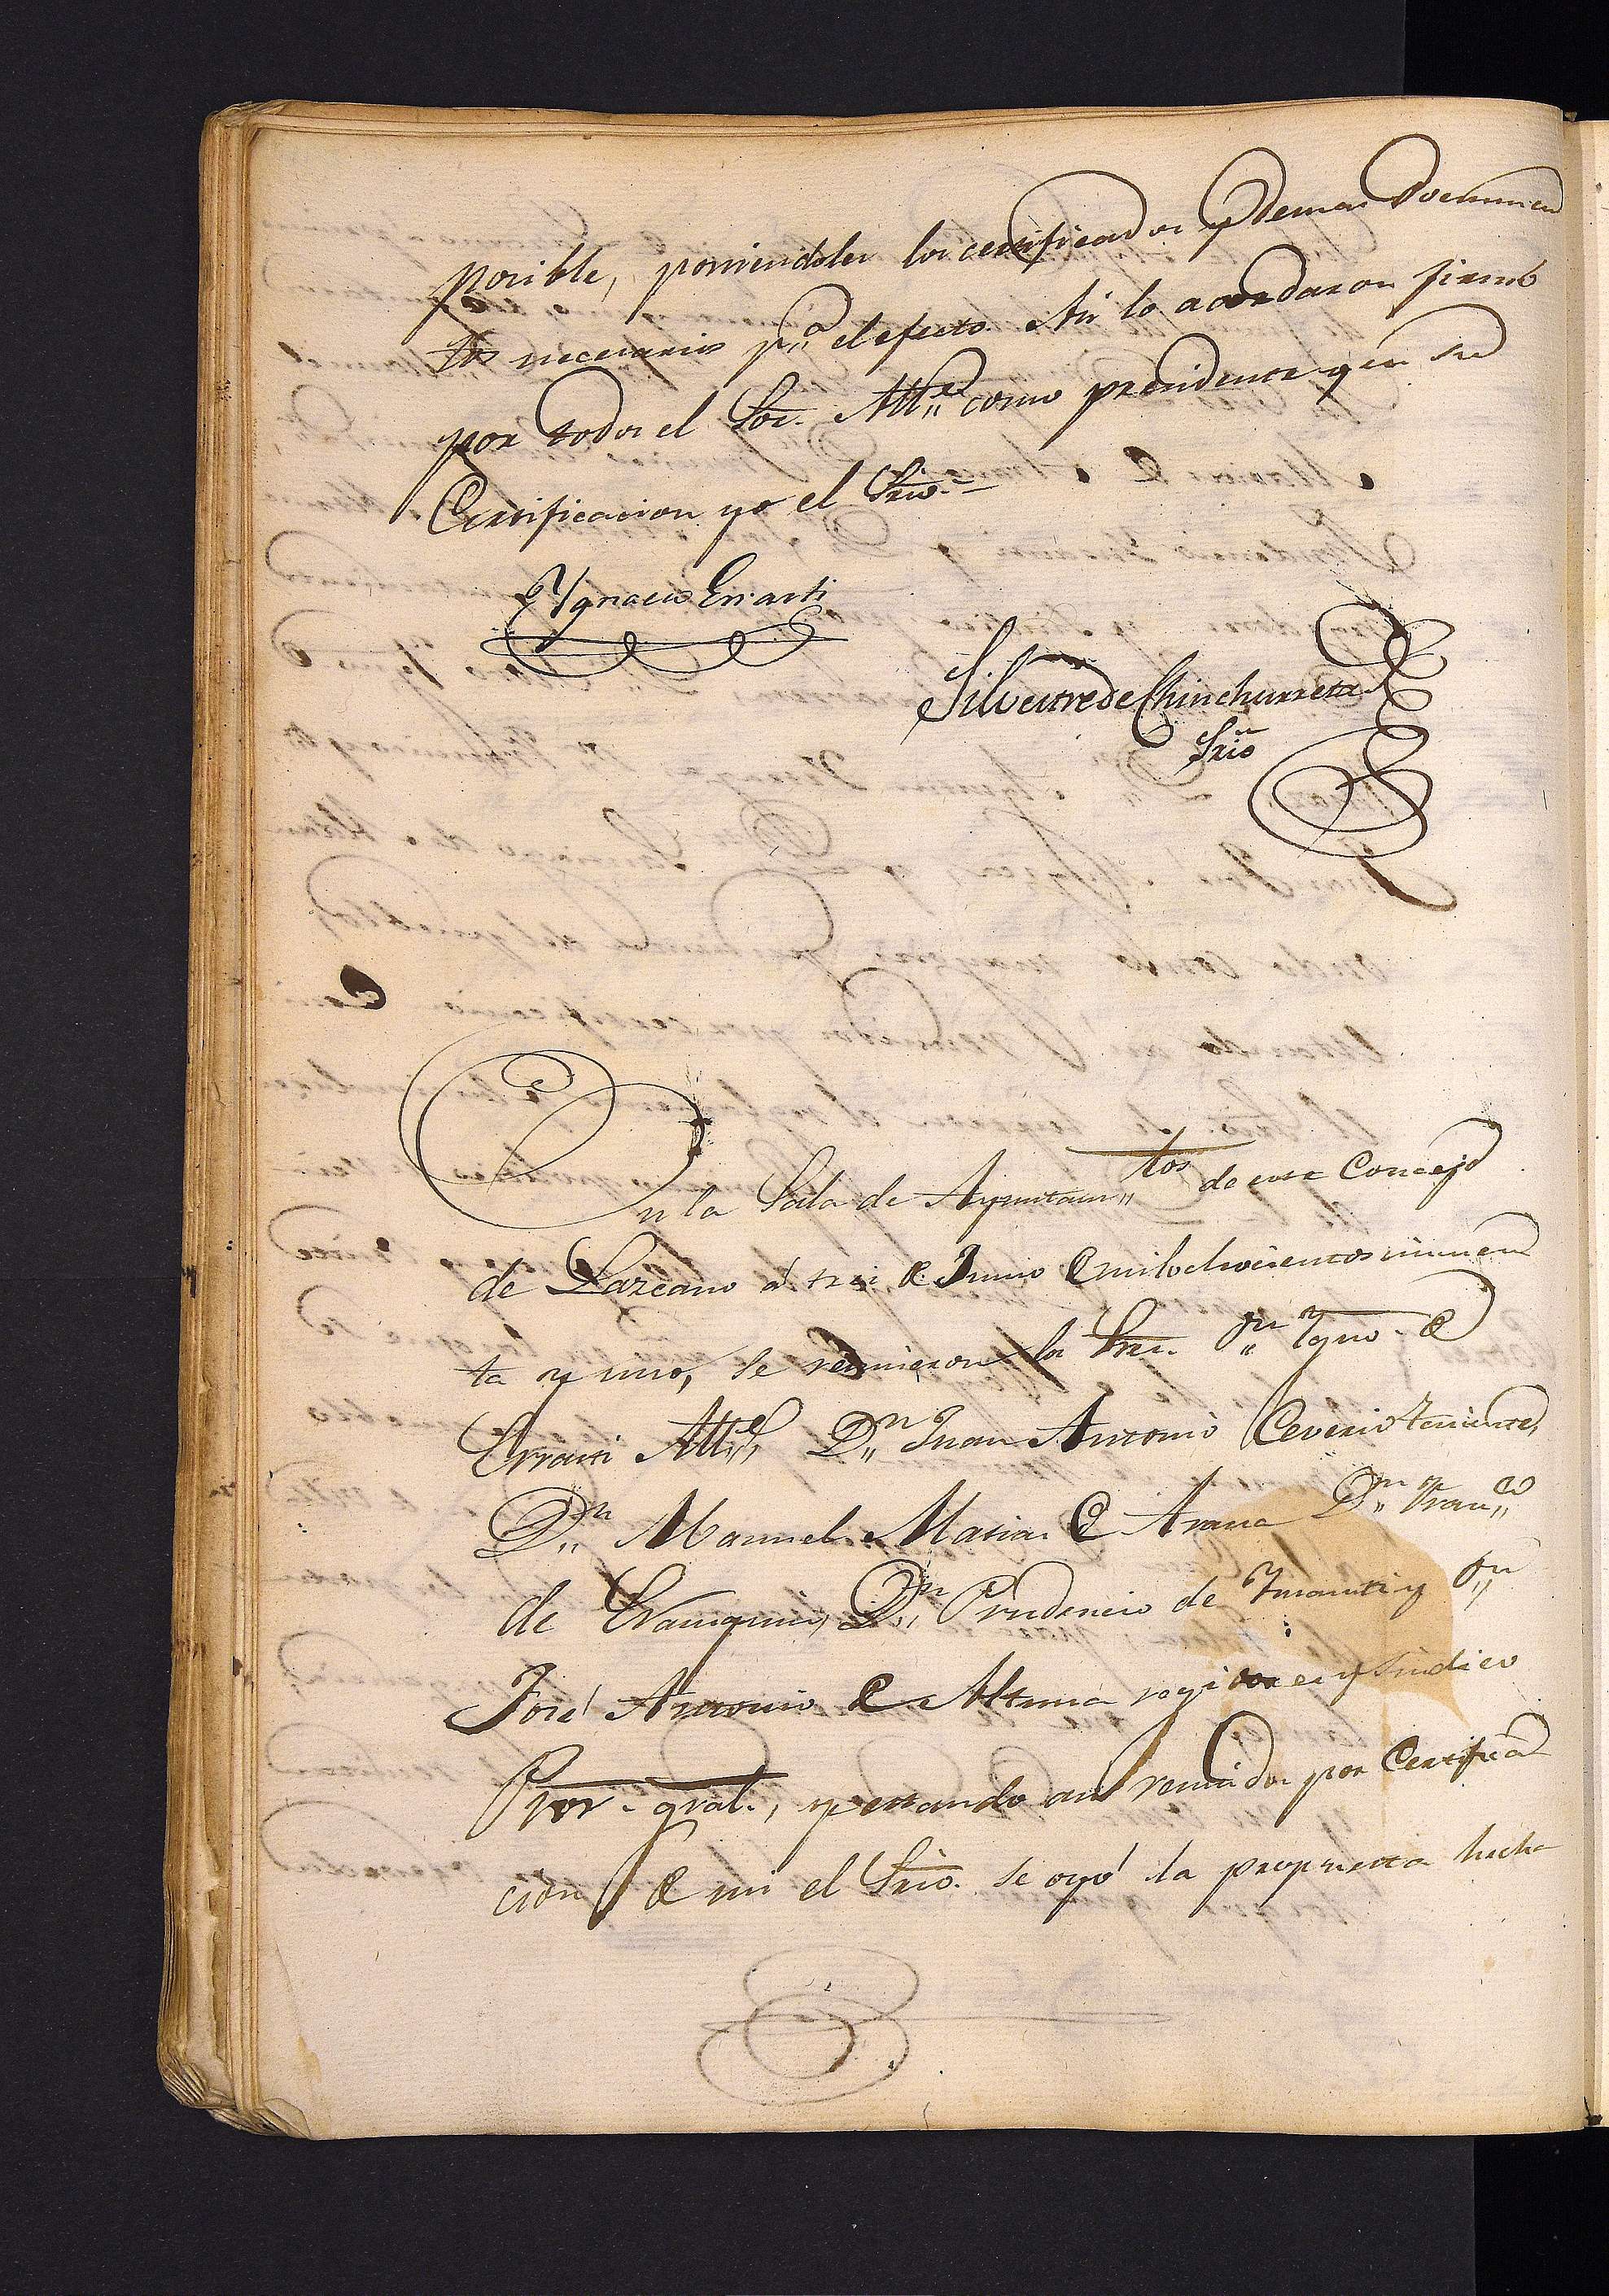 posible, poniendoles los certificados y demas documen
tos necesarios p.ª el efecto. Asi lo acordaron firmó
por todos el Sor. Alld.e como presidente y en su
Certificacion yo el Srio.
Ygnacio Errasti
Silvestre de Chinchurreta
Srio
En la Sala de Ayuntam.tos de este Concejo
de Lazcano á tres de Junio de mil ochocientos cincuen
ta y uno, se reunieron los Sres. D.n Ygno. de
Errasti Alld.e, D.n Juan Antonio Ceverio teniente,
D.n Manuel Maria de Arana D.n Fran.co
de D.n Prudencio de y D.n
José Antonio de Altuna regidores y Sindico
Pror. gral., y estando asi reunidos por Certifica
cion de mi el Srio. se oyó la propuesta hecha